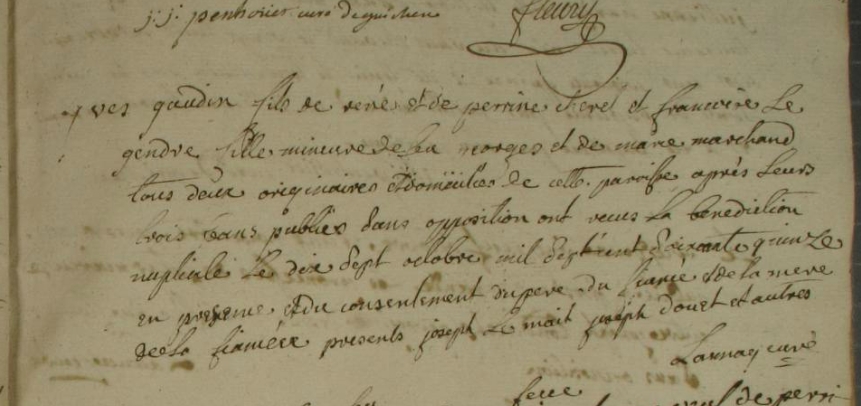 j: j: penhoüet curé de guichen
fleury
yves gaudin fils de rené et de perrine et francoise Le
gendre fille mineure de georges et de marie marchand
tous deux originaires et domicilies de cette paroisse après Leurs
trois bans publies sans opposition ont recus La benediction
nuptiale Le dix sept octobre mil sept cent soixante quinze
en presence et du consentement du pere du fiancé et de la mere
de la fiancéee presents joseph Le joseph doüet et autres
curé
de perri